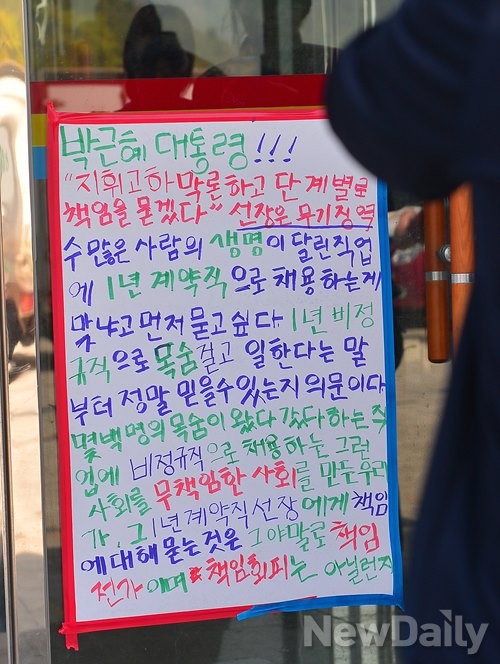 박근혜 대통령!!!
"지휘고하 막론하고 단계별로
책임을 묻겠다" 선장은 무기징역
수 많은 사람의 생명이 달린직업
에 1년 계약직으로 채용하는게
맞냐고 먼저 묻고싶다. 1년 비정
규직으로 목숨걸고 일한다는 말
부터 정말 믿을수 있는지 의문이다
몇백명의 목숨이 왔다 갔다 하는 직
업에 비정규직으로 채용하는 그런
사회를 무책임한 사회를 만든 우리
가, 그 1년계약직선장에게 책임
에 대해 묻는것은 그야말로 책임
전가이며 책임회피는 아닐런지
NewDaily